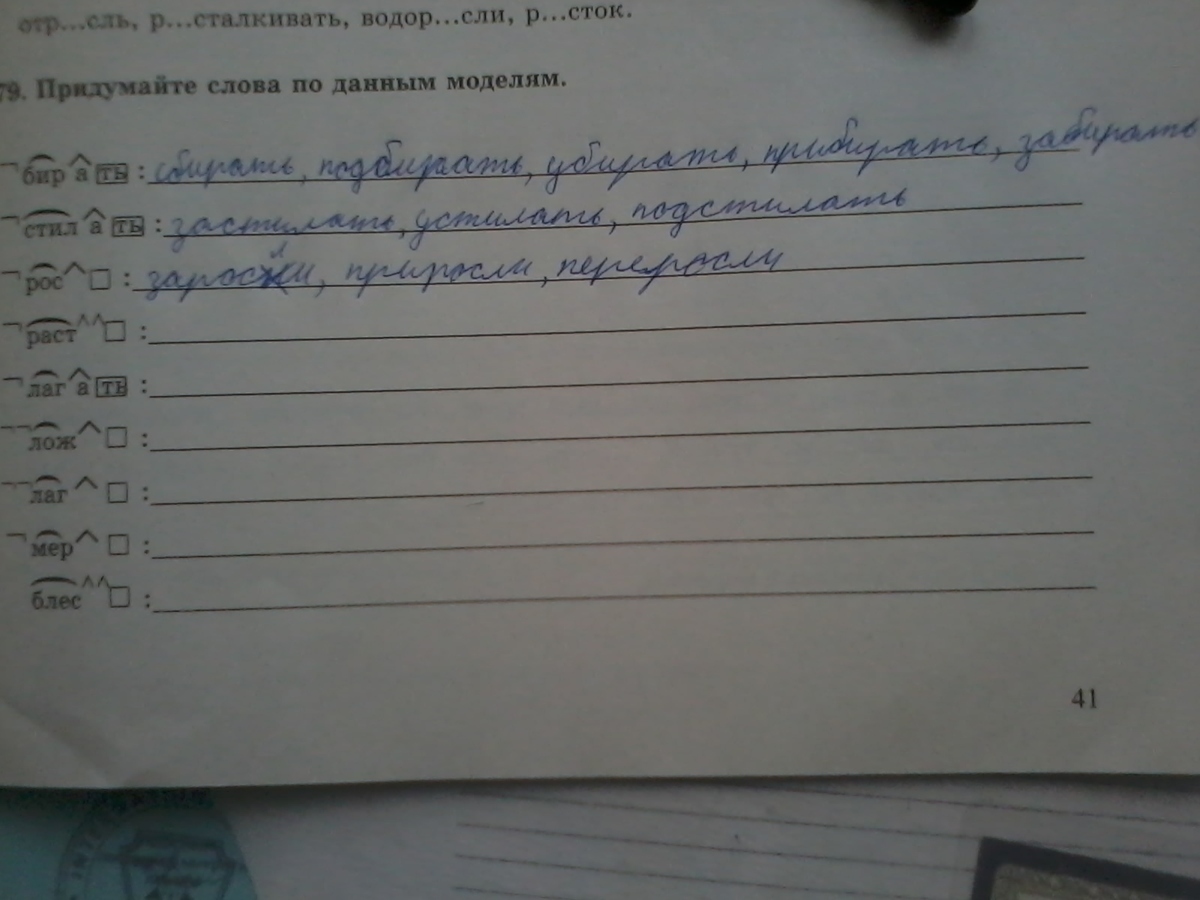 отр...сль, р...сталкивать, водор...сли, р...сток.
79. Придумайте слова по данным моделям.
бир а ть : сбирать, подбирать, убирать, прибирать, забирать
стил а ть : застилать, устилать, подстилать
рос : заросли, приросли, переросли
раст :
лаг а ть :
лож :
лаг :
мер :
блес :
41